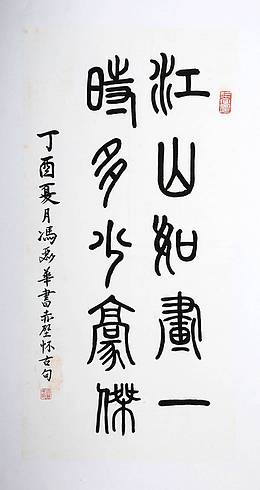 江山如畫一
時多少豪傑
丁酉夏月馮磊華書赤壁怀古句